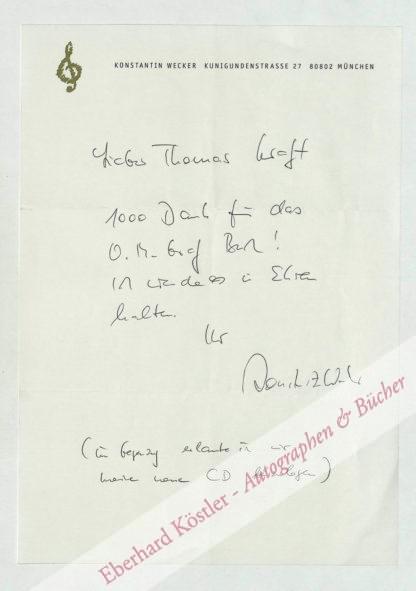 KONSTANTIN WECKER KUNIGUNDENSTRASSE 27 80802 MÜNCHEN
Lieber Thomas Kraft
1000 Dank für das
O. M. Graf Buch!
Ich werde es in Ehren
halten.
Ihr
(im Gegenzug erlaube ich mir
meine neue CD)
Eberhard Köstler - Autographen & Bücher